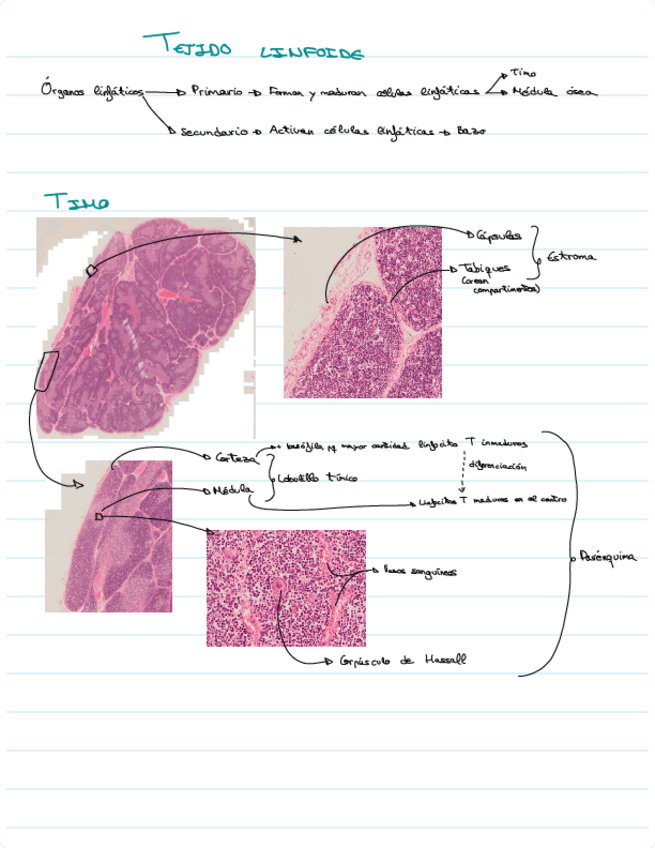 TEJIDO LINFOIDE
Órganos linfáticos → Primario → Forman y maduran células linfáticas → Timo
→ Médula ósea
→ Secundario → Activan células linfáticas → Bazo
TIMO
Cápsulas
Tabiques
(crean
compartimentos)
Estroma
Corteza → + basófila pq mayor cantidad linfocito T inmaduros
diferenciación
Lobulillo tímico
Médula
Linfocitos T maduros en el centro
Parénquima
Vasos sanguíneos
Corpúsculo de Hassall